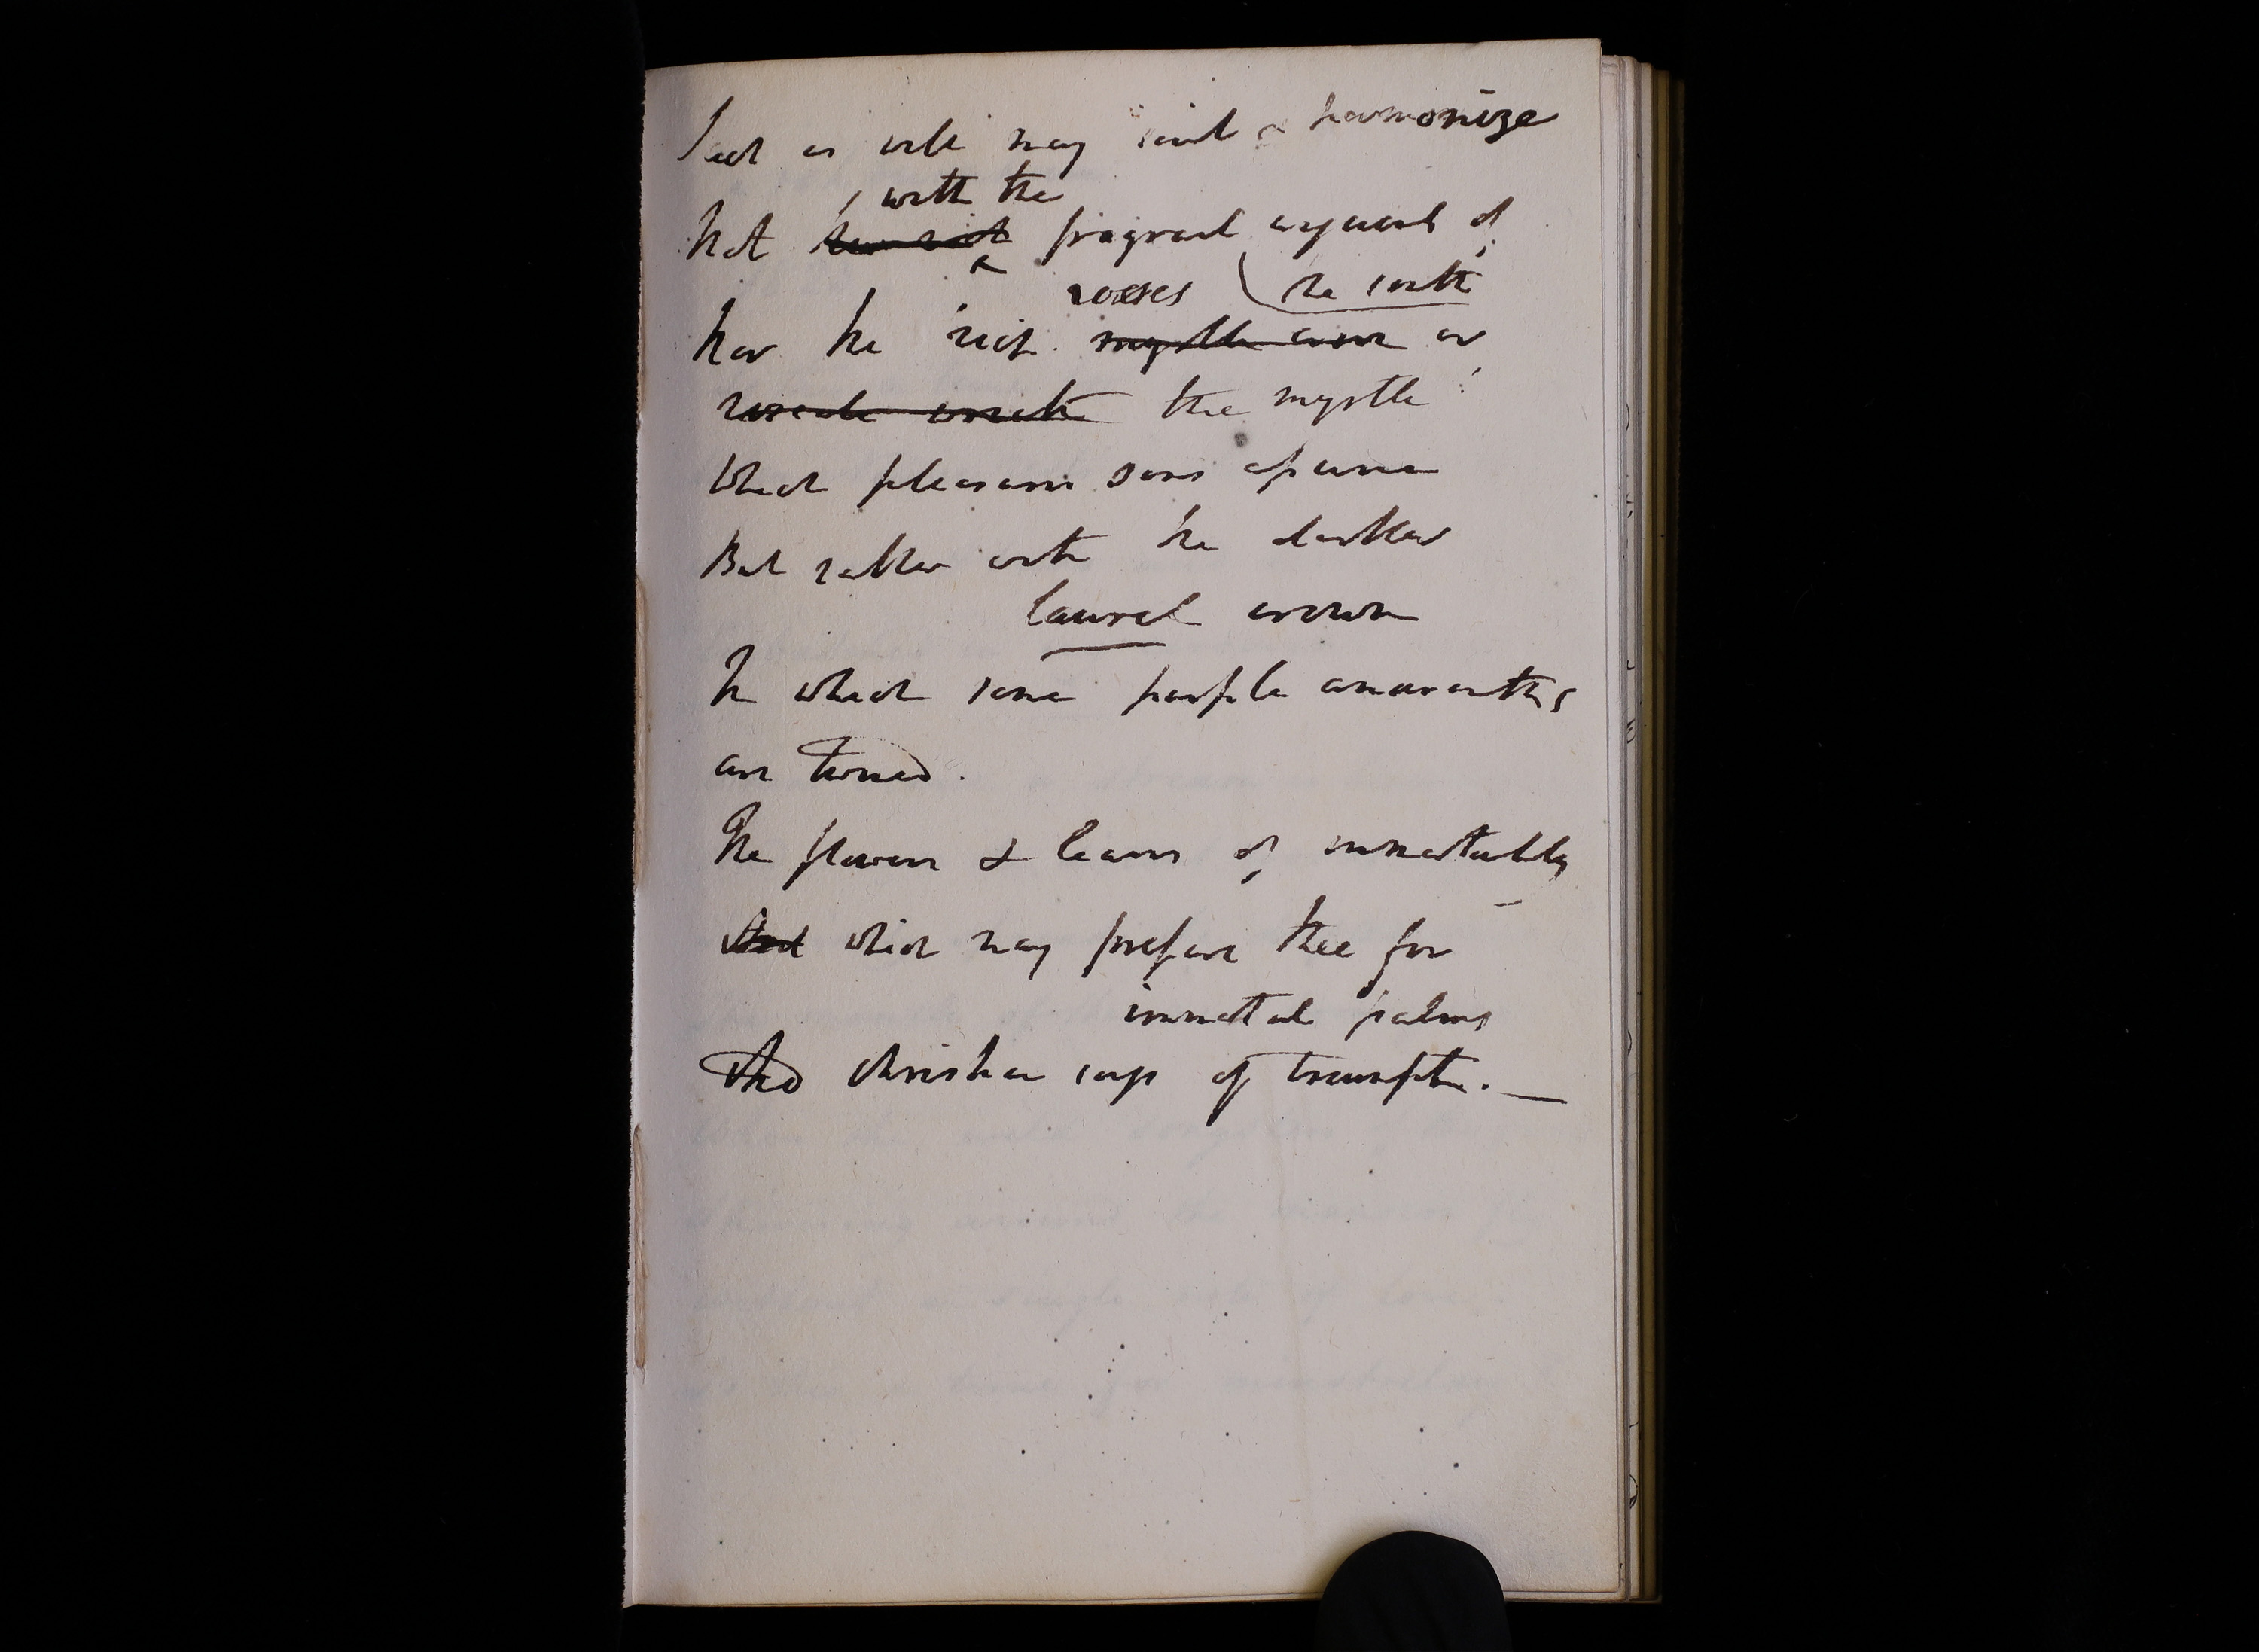 Such as well may suit & harmonize
with the
Not fragrant of
roses (the south
Nor the rich or
the myrtle
Which pleasures sons assume
But rather with the darker
laurel crown
In which some purple amaranths
are twined.
The flowers & leaves of immortality
And which may prepare thee for
immortal palms
The christian of triumph. —